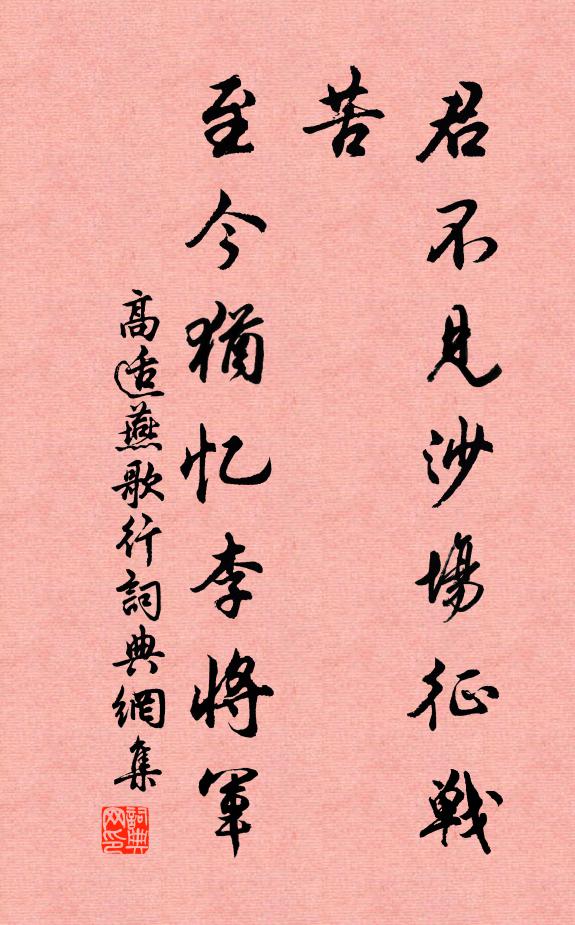 君不見沙場征戦
苦
至今猶忆李將軍
高适燕歌行詞典網集
詞典
网印